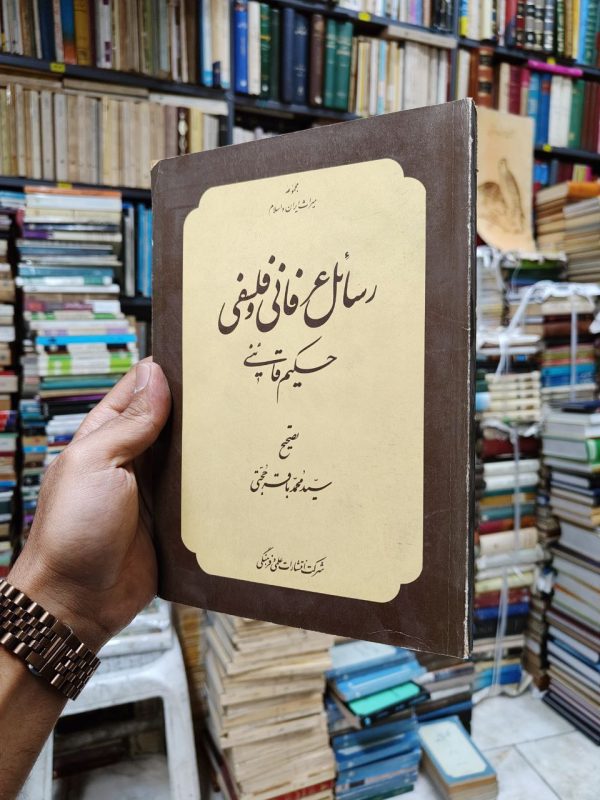 مجموعه
میراث ایران و اسلام
رسائل عرفانی و فلسفی
حکیم قاینی
تصحیح
سید محمد باقر حجتی
شرکت انتشارات علمی و فرهنگی